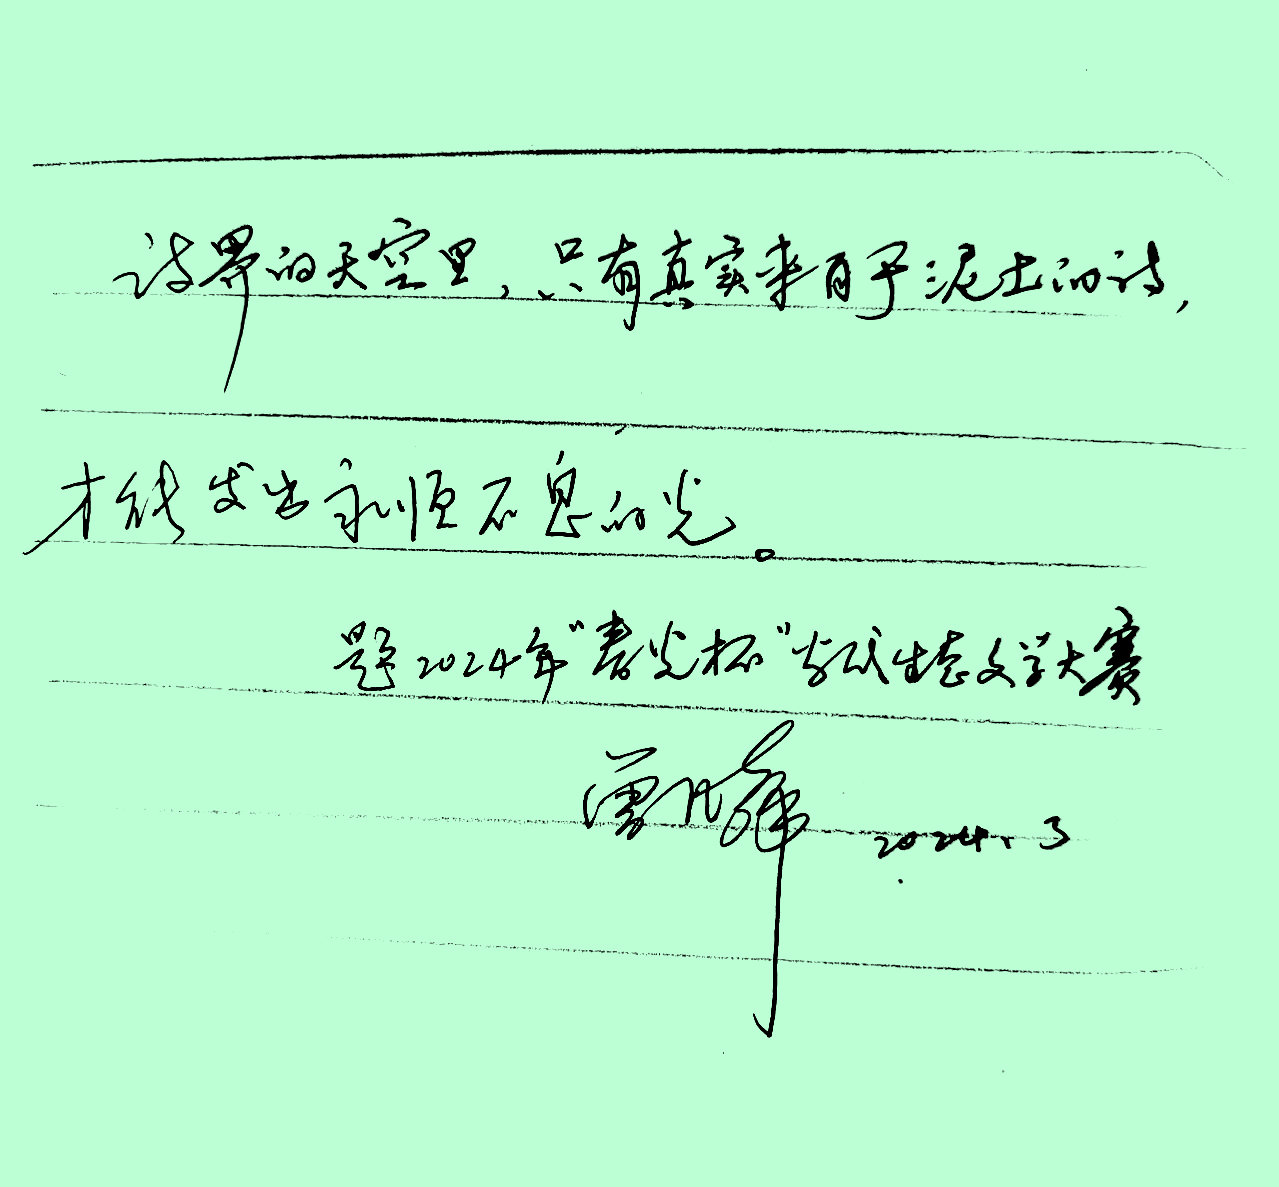 诗界的天空里，只有真实来自于泥土的诗，
才能发出永恒不息的光。
题2024年“春光杯”当代生态文学大赛
曾凡华 2024.3